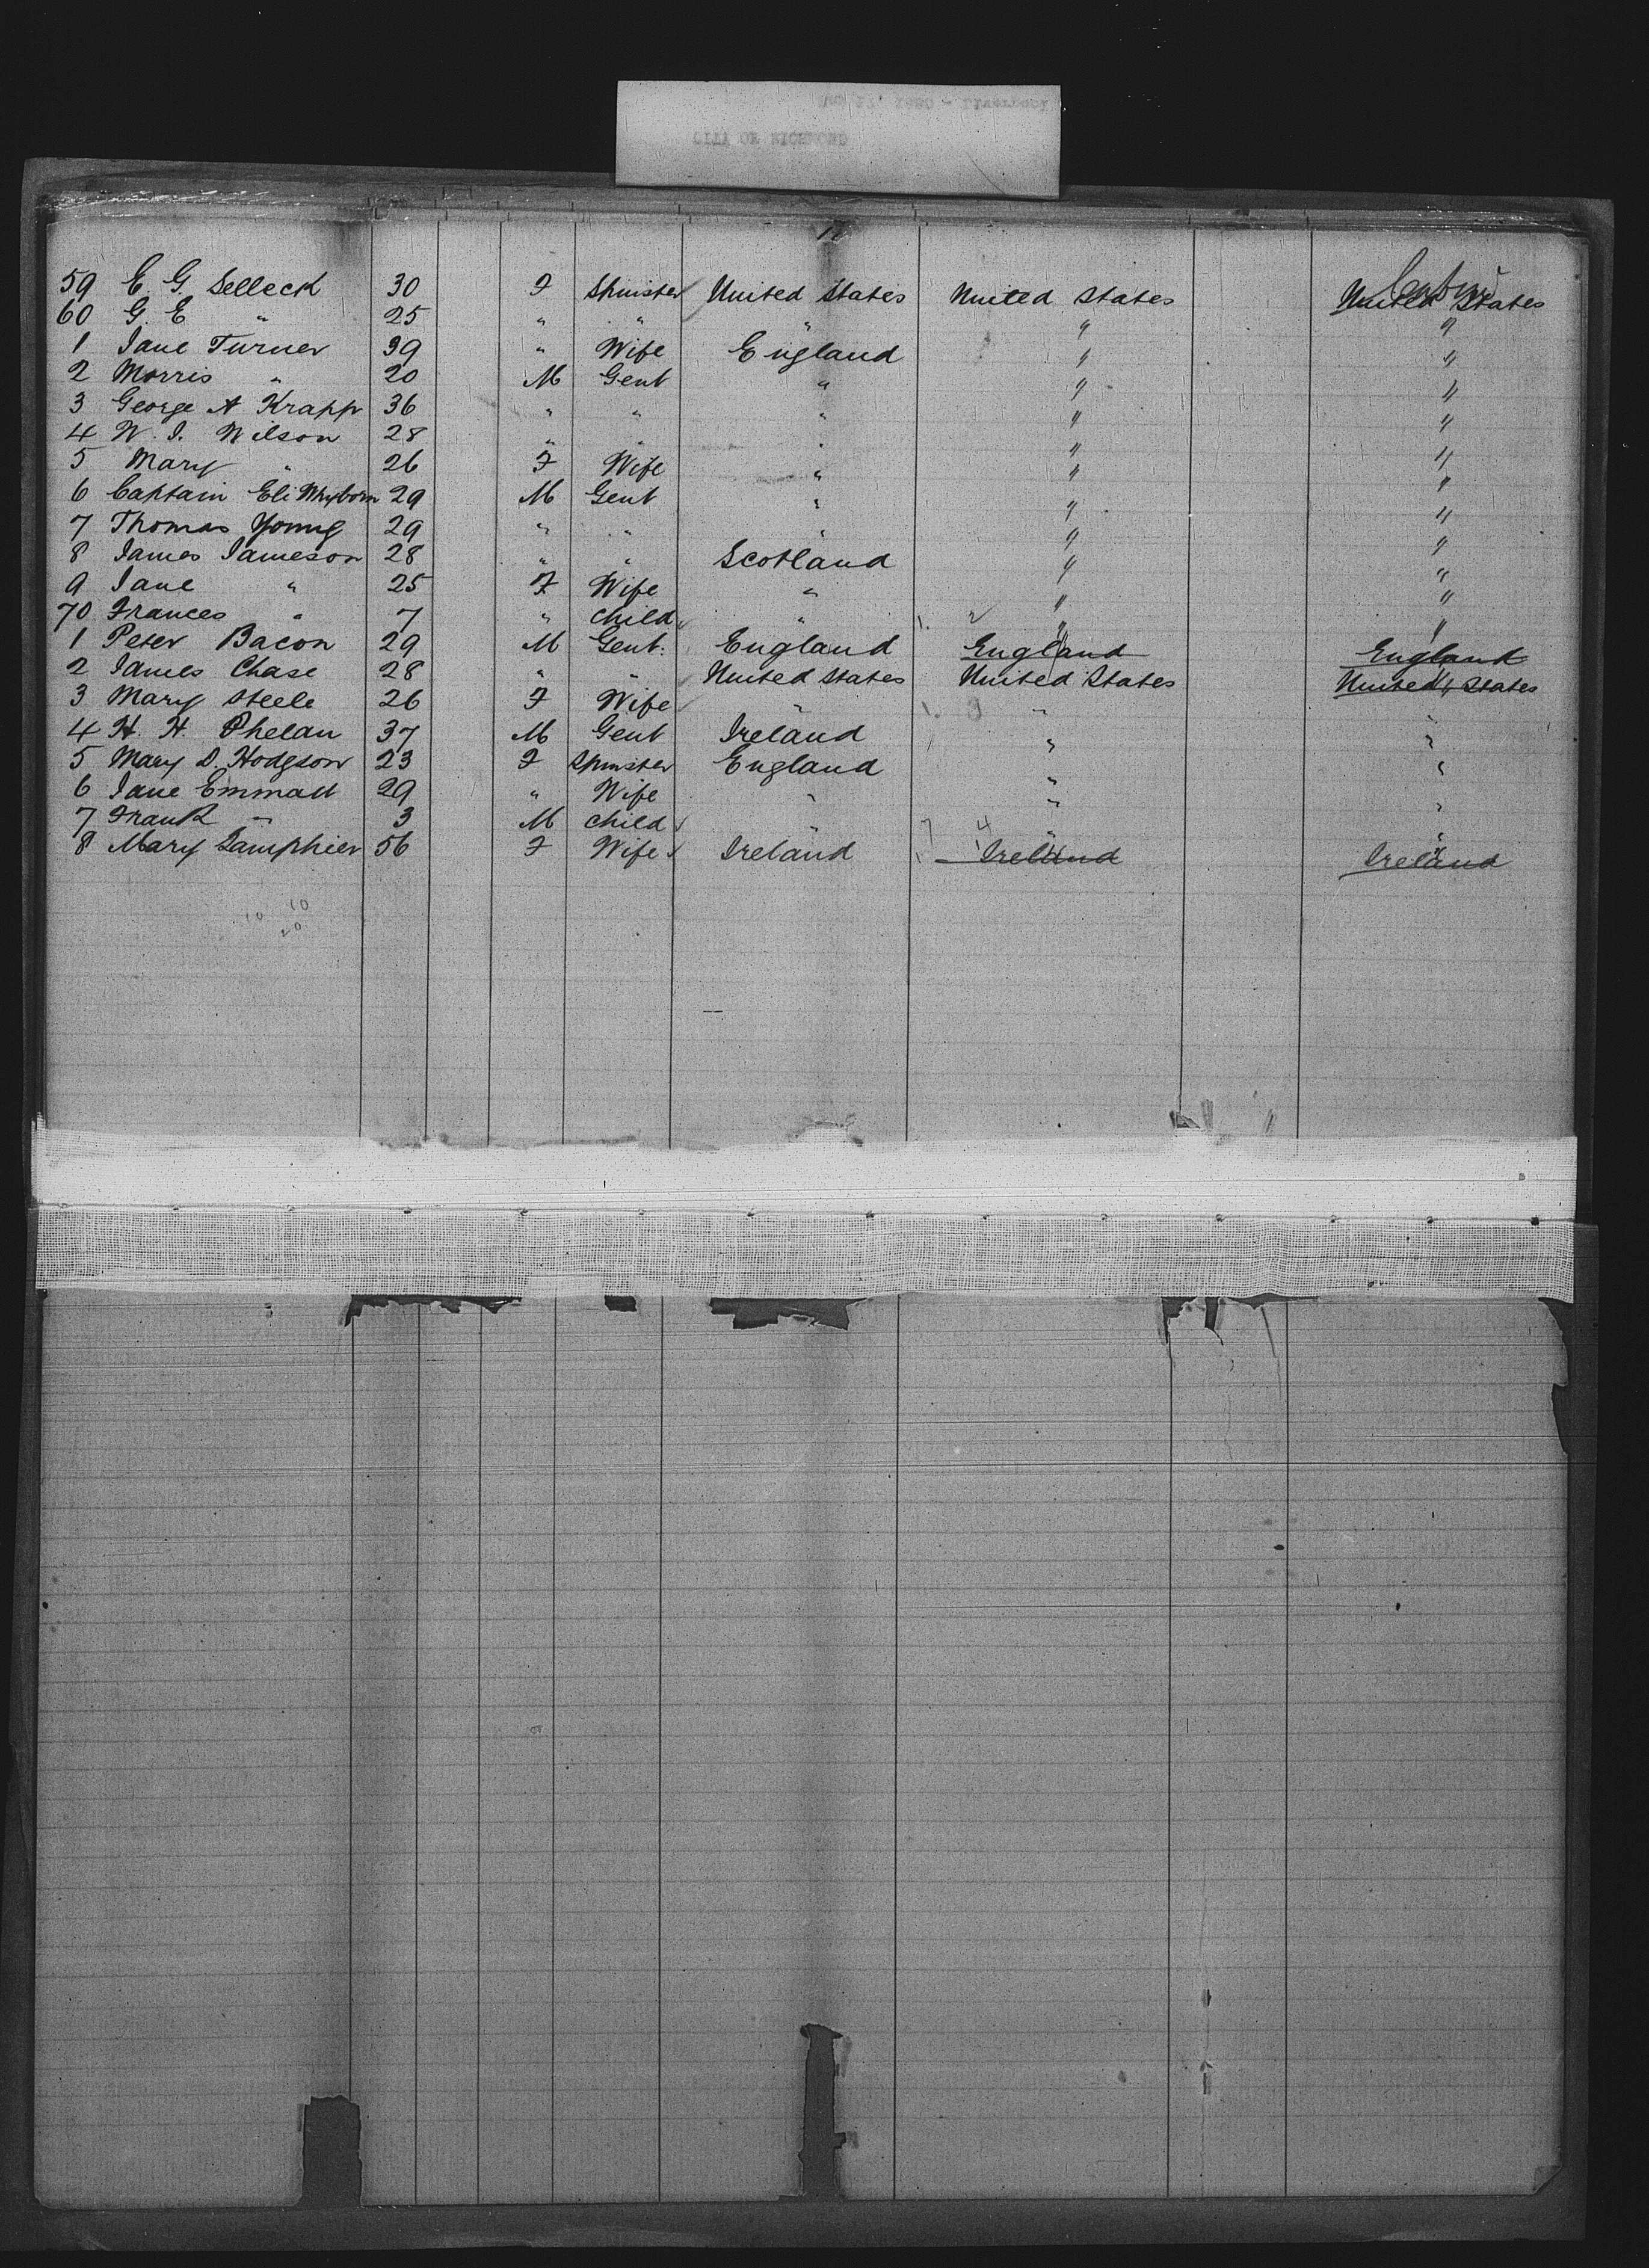 CITY OF RICHMOND
Cabin
59 E. G. Selleck 30 F Spinster United States United States United States
60 G. E " 25 " " " " "
1 Jane Turner 39 " Wife England " "
2 Morris " 20 M Gent " " "
3 George A Krapp 36 " " " " "
4 W. I. Wilson 28 " " " " "
5 Mary " 26 F Wife " " "
6 Captain Eli 29 M Gent " " "
7 Thomas Young 29 " " " " "
8 James Jameson 28 " " Scotland " "
9 Jane " 25 F Wife " " "
70 Frances " 7 " Child " " "
1 Peter Bacon 29 M Gent. England England England
2 James Chase 28 " " United States United States United States
3 Mary Steele 26 F Wife " " "
4 H. H. Phelan 37 M Gent Ireland " "
5 Mary D. Hodgson 23 F Spinster England " "
6 Jane Emmatt 29 " Wife " " "
7 Frank " 3 M Child " " "
8 Mary Lamphier 56 F Wife Ireland Ireland Ireland
10 10
20